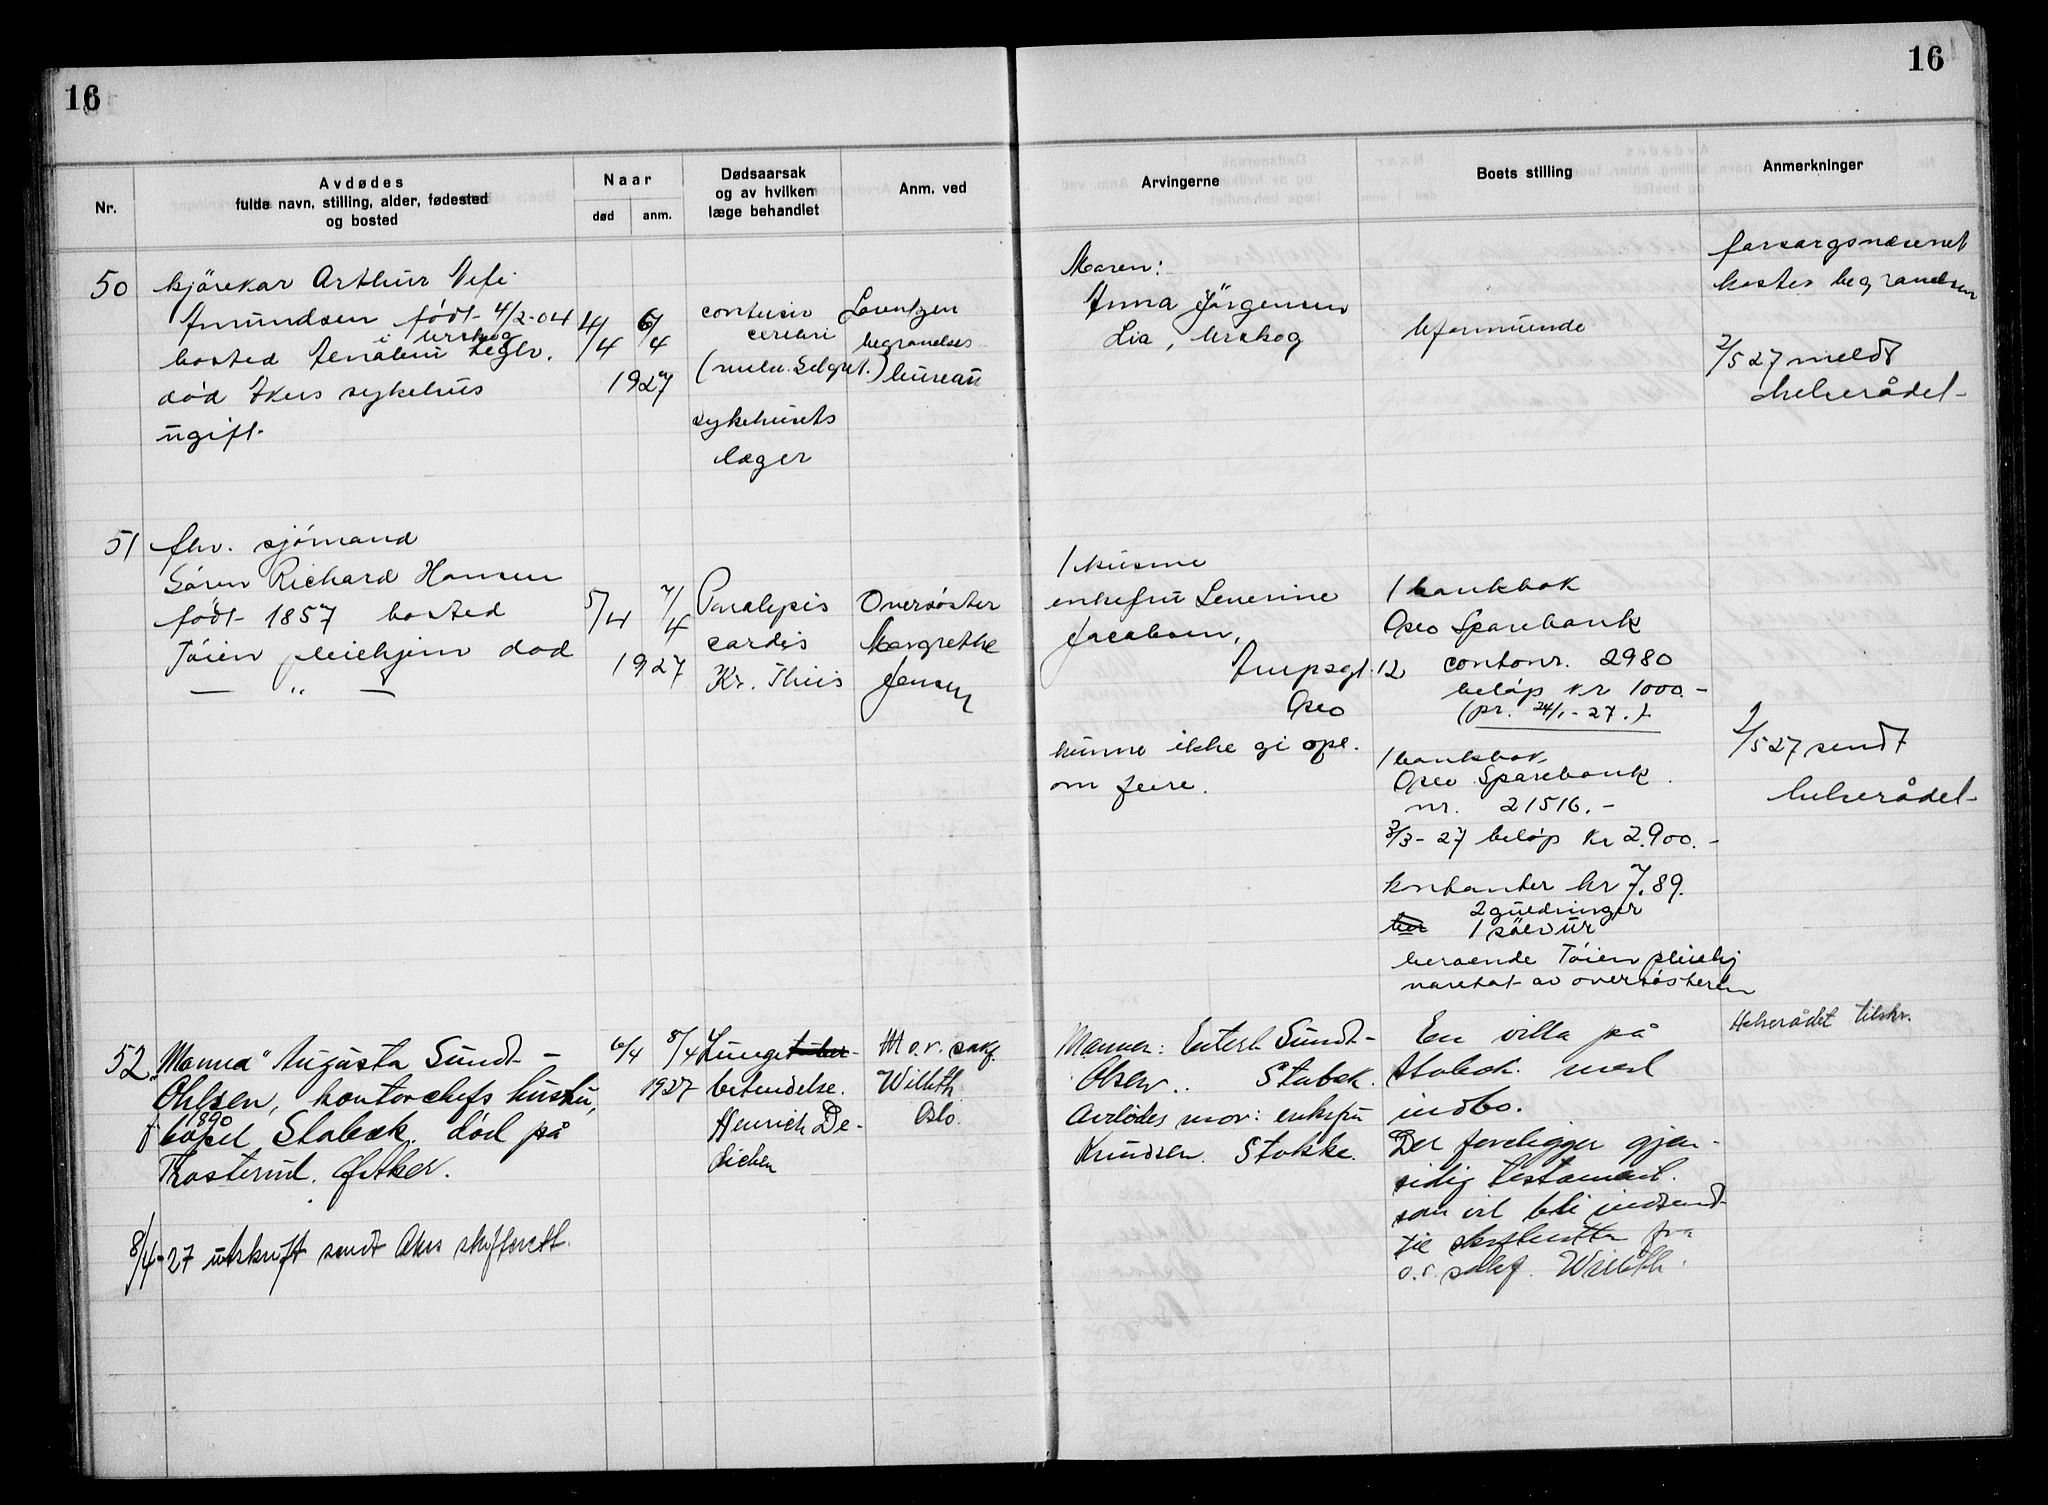 16
16
Nr.
Avdødes
fulde navn, stilling, alder, fødested
og bosted
Naar
død
anm.
Dødsaarsak
og av hvilken
læge behandlet
Anm. ved
Arvingerne
Boets stilling
Anmerkninger
50
kjørekar Arthur
Amundsen født 4/2-04
i Urskog
bosted
død Akers sykehus
ugift.
4/4
6/4
1927
contusio
cerebri
sykehusets
læger
Lorentzen
begravelses
bureau
Moren:
Anna Jørgensen
Lia, Urskog
Uformuende
forsorgsvæsenet
koster begravelsen
2/5 27 meldt
helserådet
51
fhv. sjömand
Sören Richard Hansen
født 1857 bosted
Töien pleiehjem død
— " —
5/4
7/4
1927
Paralysis
cordis
Kr. Thiis
Oversöster
Margrethe
Jensen
1 kusine
enkefru Severine
Jacobsen,
12
Oslo
kunne ikke gi opl.
om flere.
1 bankbok
Oslo Sparebank
contonr. 2980
beløp kr 1000.-
(pr. 24/1-27.)
1 bankbok
Oslo Sparebank.
nr. 21516.-
3/3-27 beløp kr 2.900.-
kontanter kr 7.89.
2 guldringer
1 sølvur
beroende Töien pleiehj
varetat av oversösteren
2/5 27 sendt
helserådet
52
"Manna" Augusta Sundt-
Ohlsen, kontorchefs hustru,
f 1890
bopel Stabæk. død på
Trosterud. V. Aker.
8/4-27 utskrift sendt Akers skifterett.
6/4
8/4
1927
Lunge
betendelse.
Henrich De-
dichen
o.r. sakf.
Willoth
Oslo.
Mannen: Sundt-
Olsen.. Stabæk.
Avdødes mor: enkefru
Knudsen. Stokke.
En villa på
Stabæk. med
indbo.
Der foreligger gjen-
sidig testament.
som vil bli indsendt
til skifteretten fra
o.r. sakf. Willoth.
Helserådet tilskr.